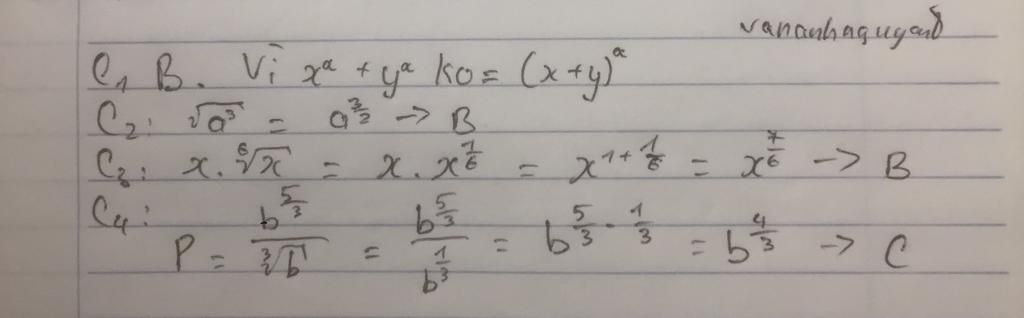 vananhnguyen8
C₁ B. Vì xᵅ + yᵅ ko = (x+y)ᵅ
C₂: √a³ = a^(3/2) → B
C₃: x.⁶√x = x.x^(1/6) = x^(1+1/6) = x^(7/6) → B
C₄:
P = b^(5/3)/³√b = b^(5/3)/b^(1/3) = b^(5/3 - 1/3) = b^(4/3) → C